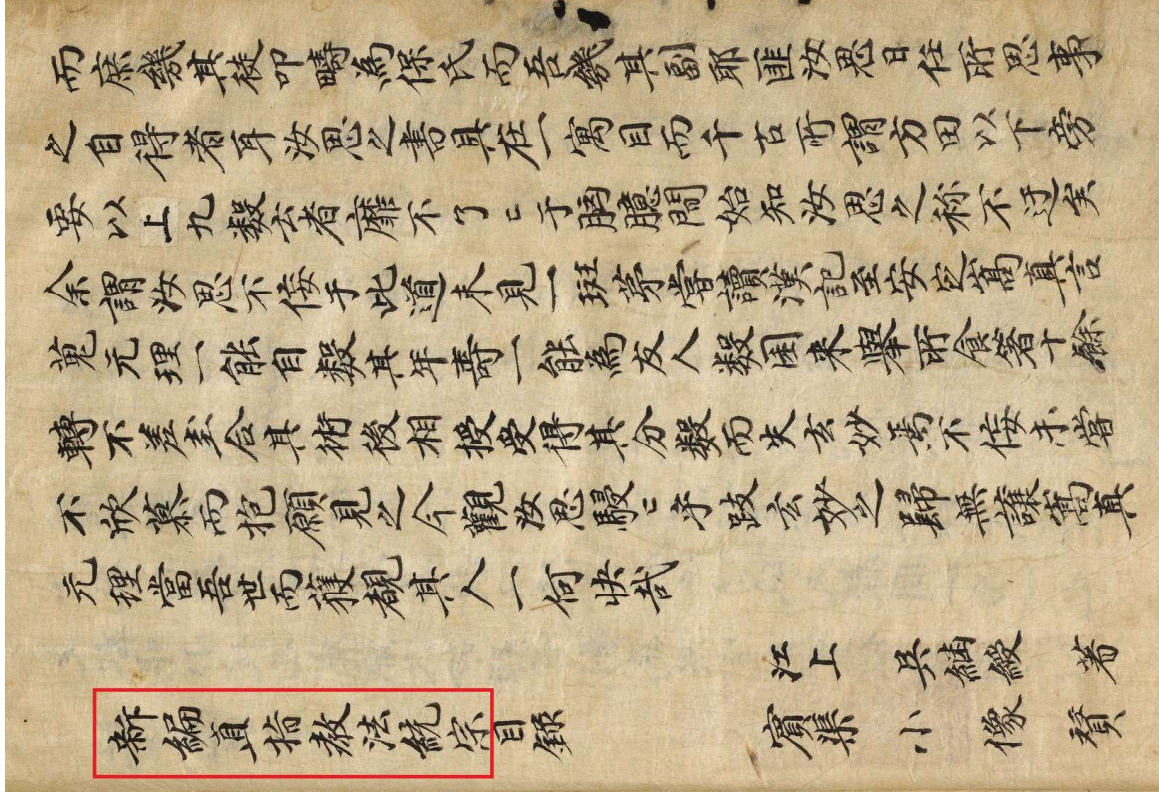 而庶幾其徒叩疇為保氏而吾幾其副耶匪汝思日任所思專
之自得者耳汝思之書具在一寓目而千古所謂方田以下旁
要以上九數云者靡不了〻于胸臆間始知汝思之称不迂矣
余謂汝思不佞于此道未見一斑第嘗讀漢記至安定嵩真玄
菟元理一能自數其年壽一能為友人數囷米舉所食箸十餘
轉不差圭合其術後相授受得其分數而失玄妙焉不佞未嘗
不欣慕而抱願見之今觀汝思駸〻乎跂玄妙之歸無讓嵩真
元理當吾世而獲覩其人一何快哉
江上 吳繼綬 著
新編直指數法統宗目錄 賓渠小像贊